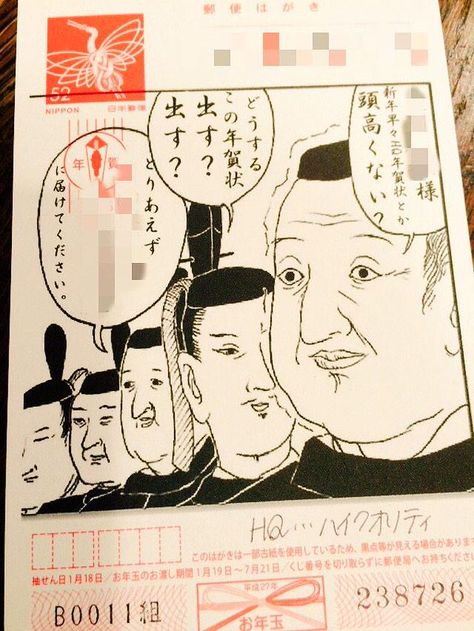 郵便はがき
52
NIPPON
日本郵便
年賀
様
新年早々HQ年賀状とか
頭高くない？
どうする
この年賀状
出す？
出す？
とりあえず
に届けてください。
HQ…ハイクオリティ
このはがきは一部古紙を使用しているため、黒点等が見える場合があります
抽せん日1月18日／お年玉のお渡し期間 1月19日〜7月21日／くじ番号を切り取らずに郵便局へお持ちください。
B0011組
平成27年
お年玉
238726